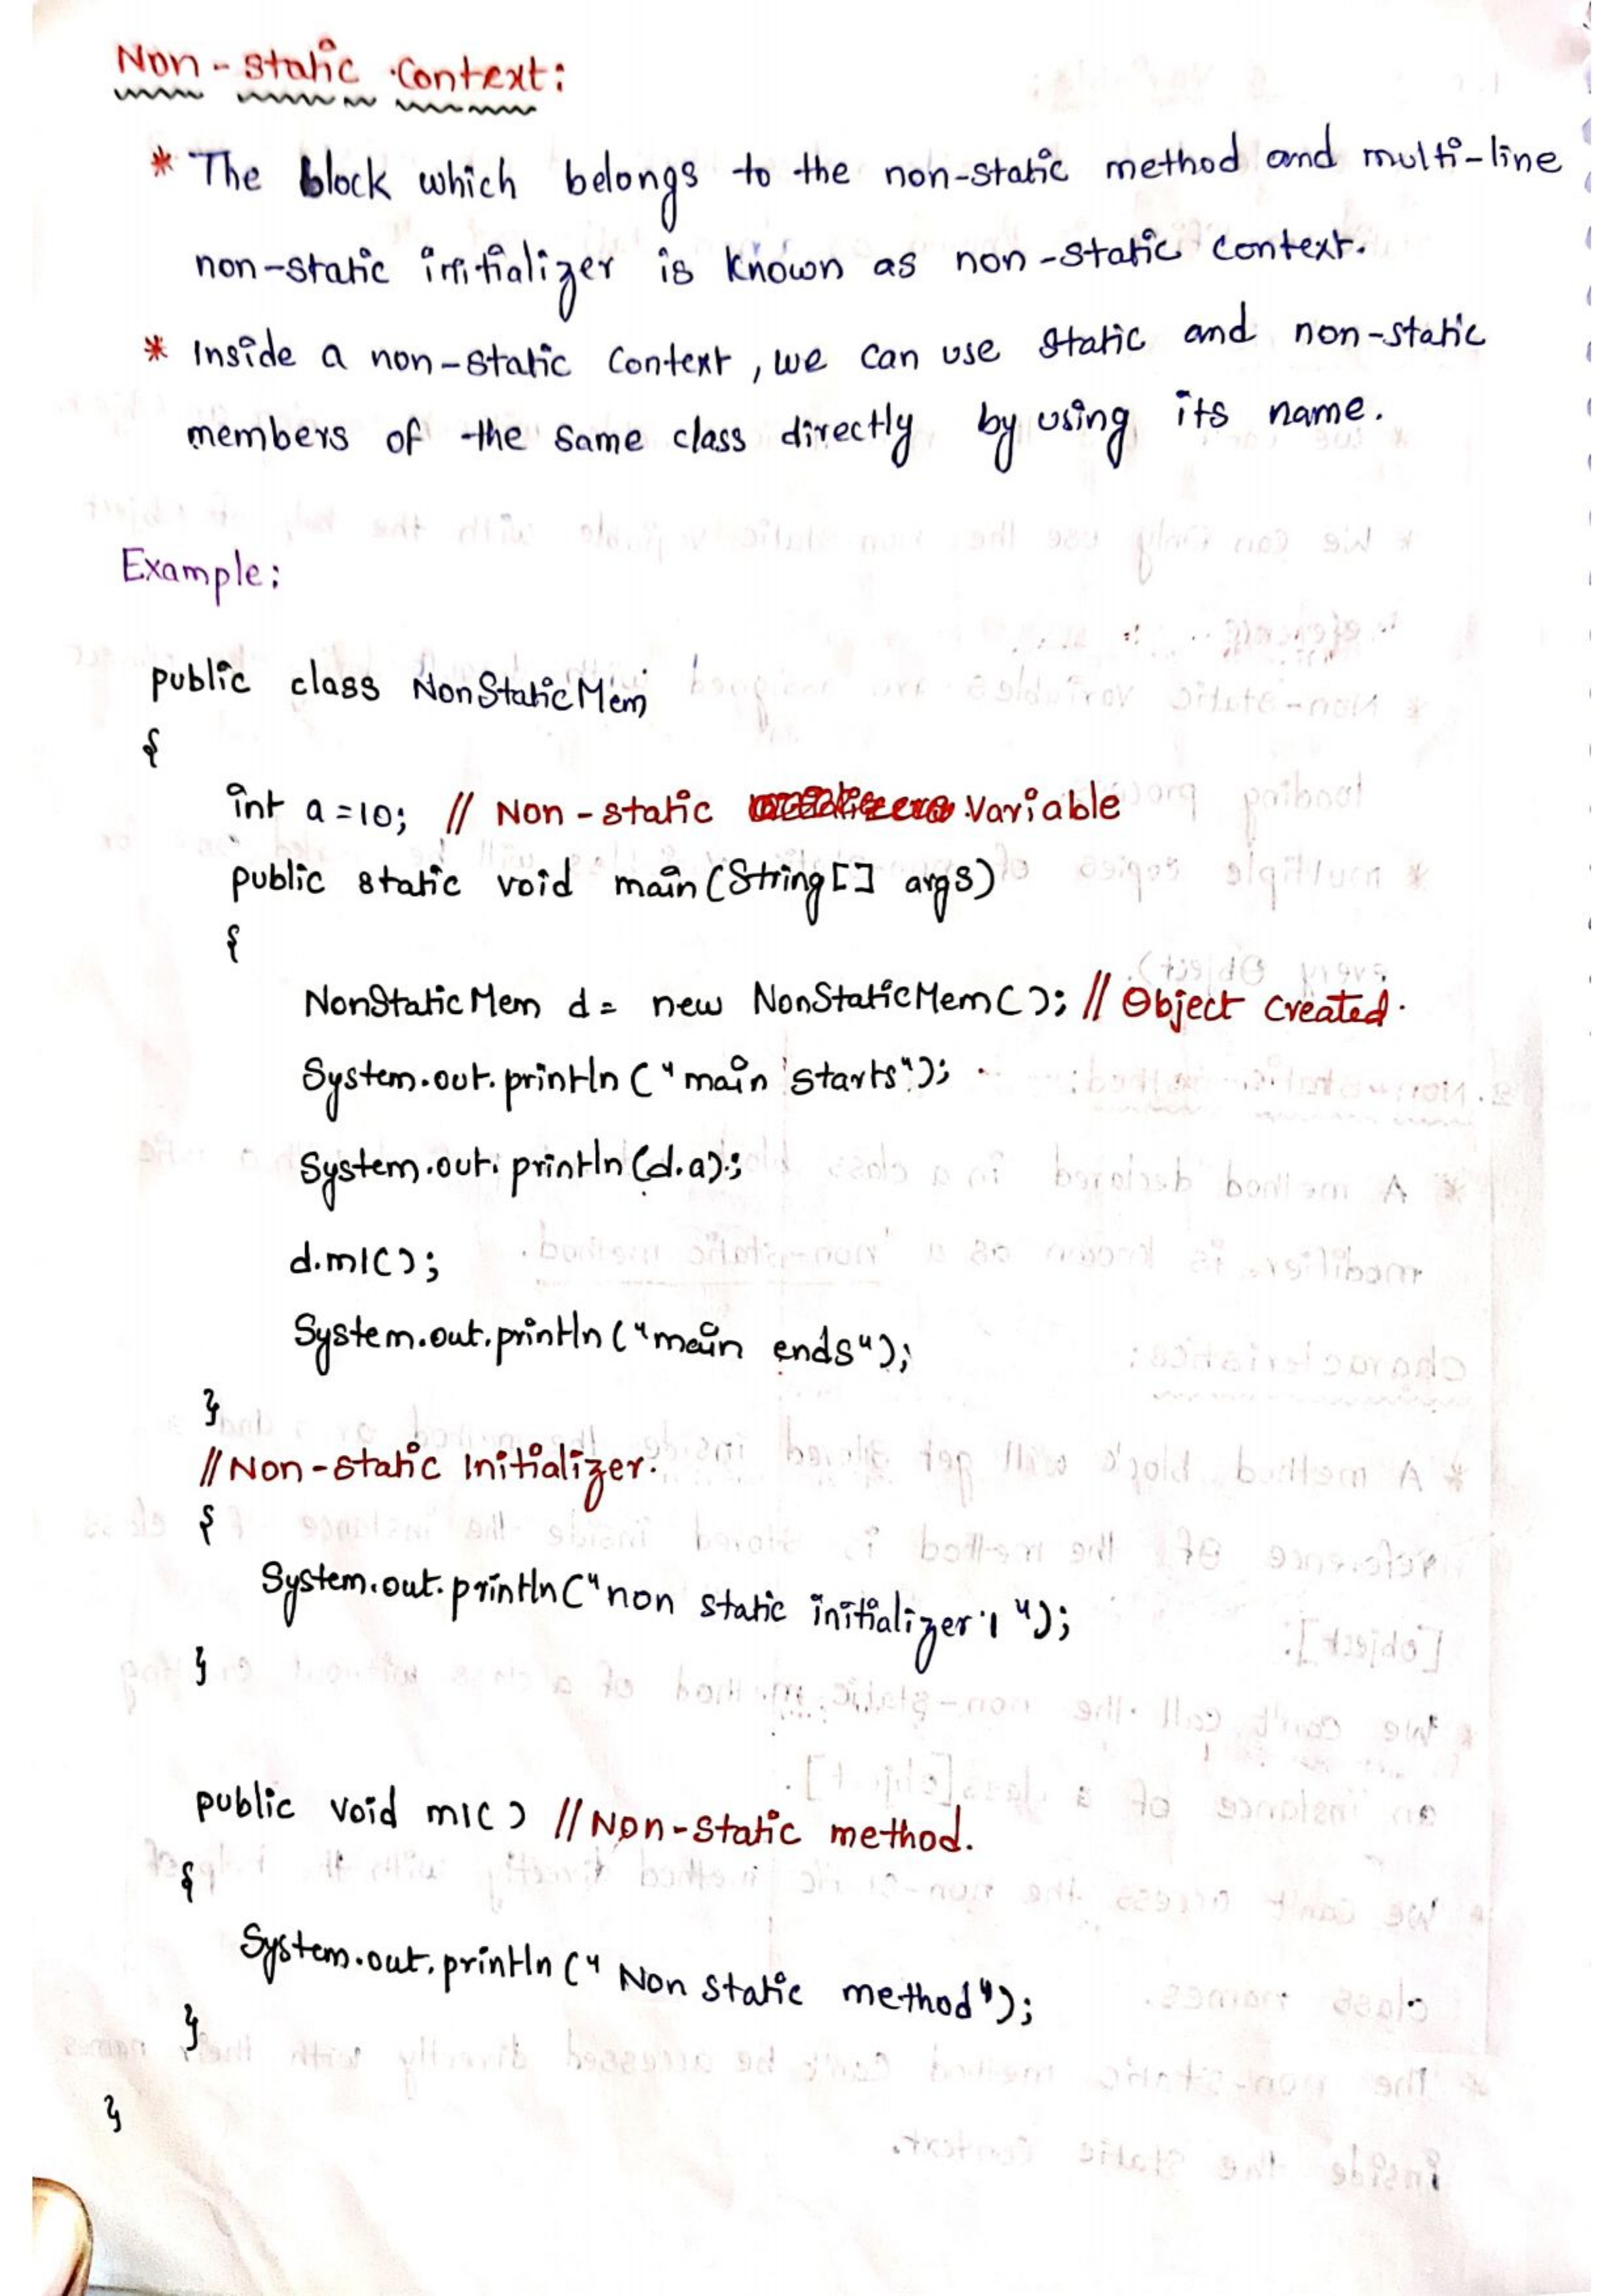 Non-static Context:
* The block which belongs to the non-static method and multi-line
non-static initializer is known as non-static context.
* Inside a non-static Context, we can use static and non-static
members of the same class directly by using its name.
Example:
public class NonStaticMem
{
int a=10; // Non-static Variable
public static void main(String[] args)
{
NonStaticMem d= new NonStaticMem(); // Object Created.
System.out.println("main starts");
System.out.println(d.a);
d.m1();
System.out.println("main ends");
}
// Non-static Initializer.
{
System.out.println("non static initializer 1");
}
public void m1() // Non-static method.
{
System.out.println("Non static method");
}
}